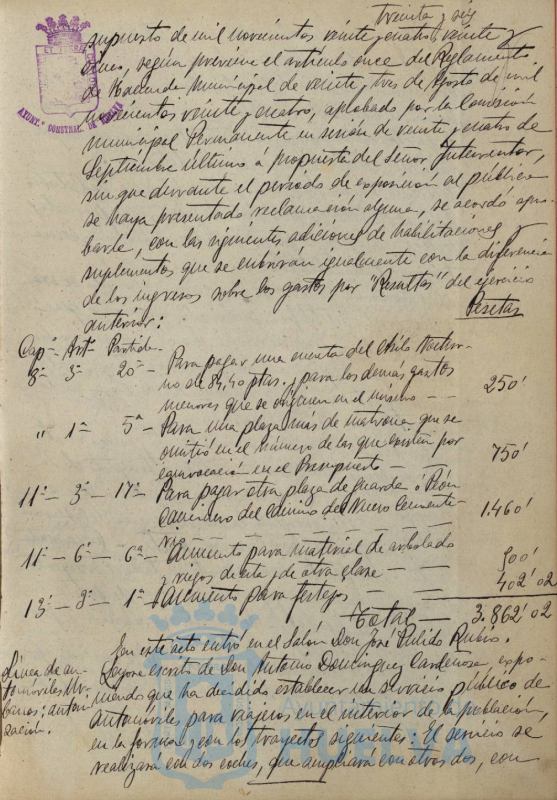 treinta y seis
supuesto de mil novecientos veinte y cuatro, veinte y
cinco, según previene el artículo once del Reglamento
de Hacienda Municipal de veinte y tres de Agosto de mil
novecientos veinte y cuatro, aprobado por la Comisión
Municipal Permanente en sesión de veinte y cuatro de
Septiembre último a propuesta del Señor Interventor,
sin que durante el período de exposición al público
se haya presentado reclamación alguna, se acordó apro-
barlo, con las siguientes adiciones de habilitaciones y
suplementos que se cubrirán igualmente con la diferencia
de los ingresos sobre los gastos por "Resultas" del ejercicio
anterior:
Pesetas
Capº Artº Partida
8º 3º 20ª Para pagar una cuenta del Asilo Noctur-
no de 84,40 ptas. y para los demás gastos
menores que se originen en el mismo — 250'
" 1º 5ª Para una plaza más de matrona que se
omitió en el número de las que existen por
equivocación en el Presupuesto — 750'
11º — 3º — 17ª — Para pagar otra plaza de Guarda o Peón
Caminero del Camino del Nuevo Cemente-
rio — 1.460'
11º — 6º — 6ª — Aumento para material de arbolado
y riegos de esta y de otra clase — 500'... 
13º — 3º — 1ª Aumento para festejos — 402'02
Total — 3.862'02
En este acto entró en el Salón Don José Pulido Rubio.
Línea de au-
tomóviles Ur-
banos: autori-
zación.
Leyose escrito de Don Antonio Domínguez Cardeñosa, expo-
niendo que ha decidido establecer un servicio público de
Automóviles, para viajeros en el interior de la población,
en la forma y con los trayectos siguientes: El servicio se
realizará con dos coches, que ampliará con otros dos, con
AYUNT.º CONSTNAL. DE HUELVA
Ayuntamiento de
HUELVA